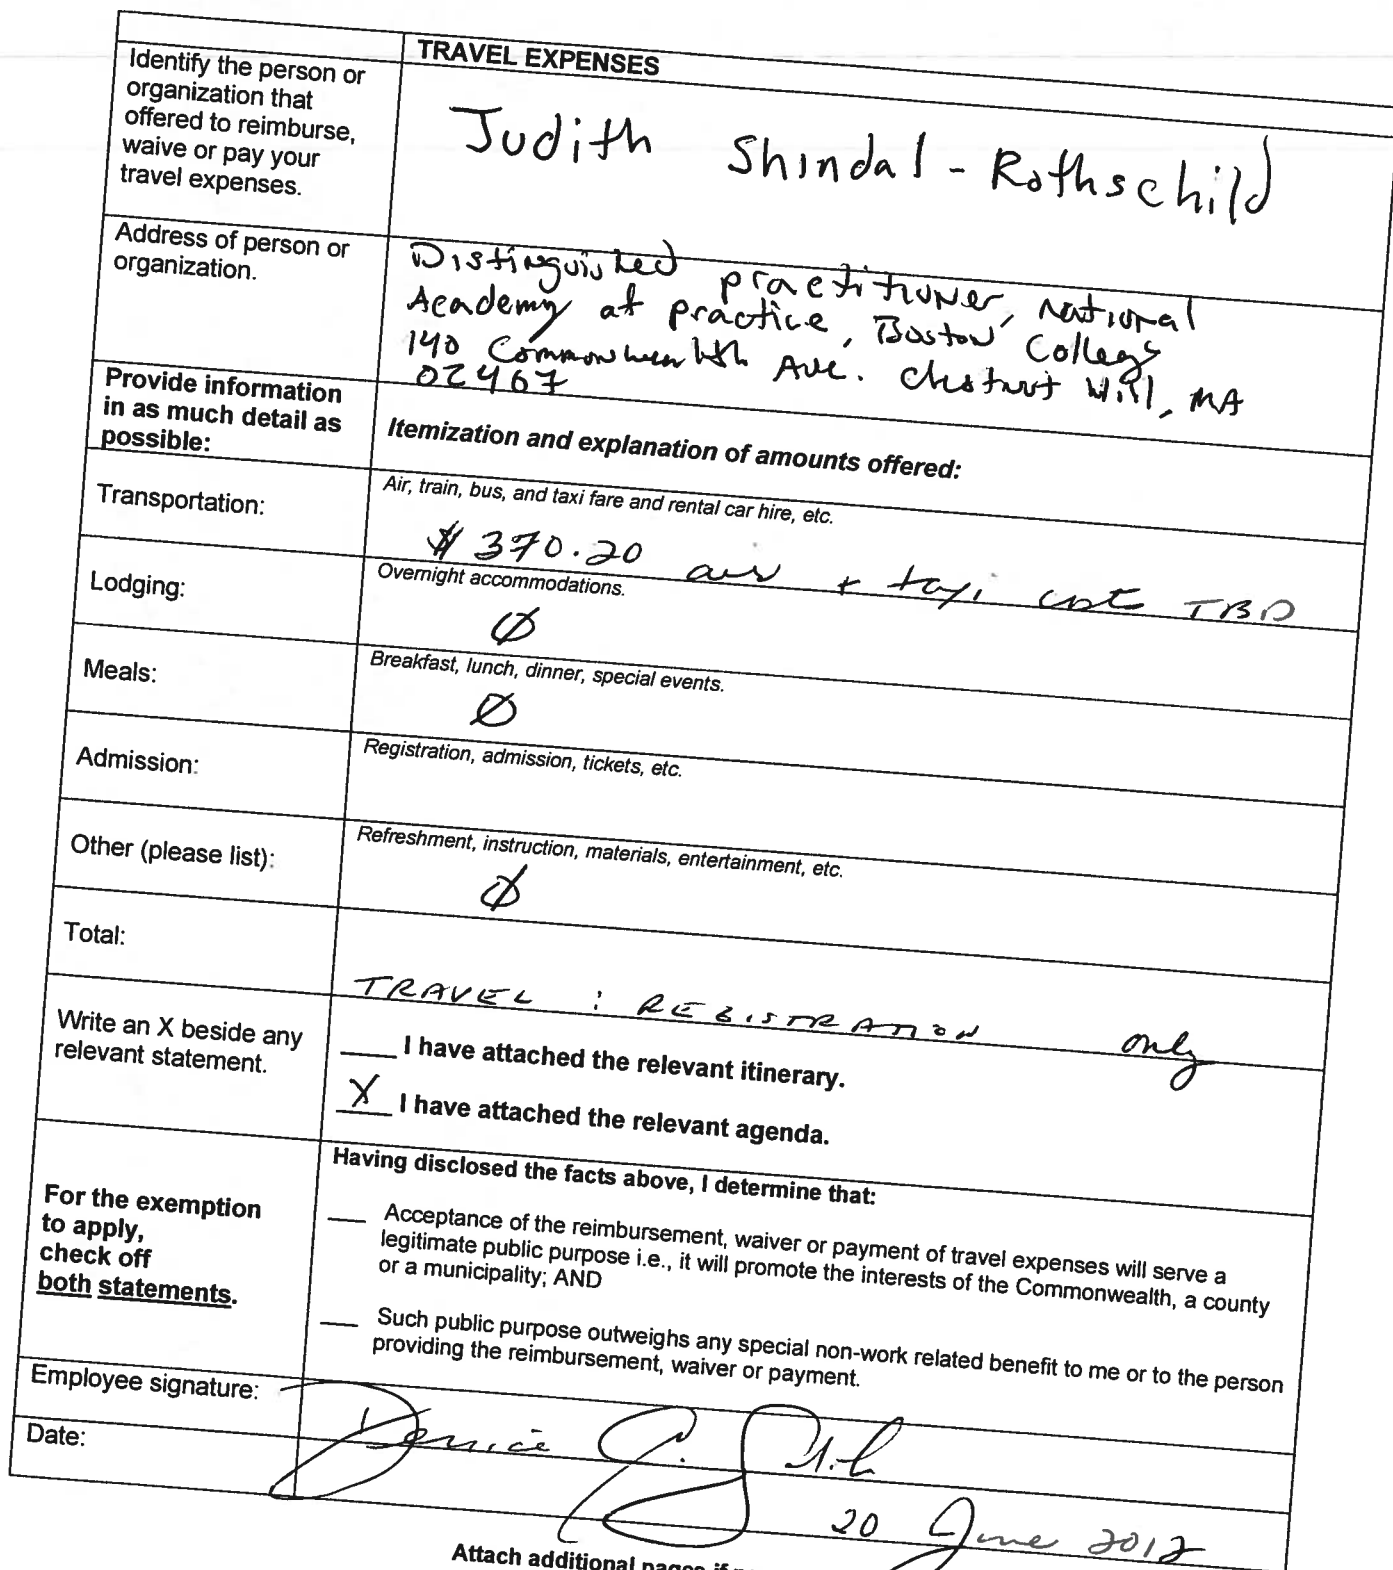 TRAVEL EXPENSES
Identify the person or
organization that
offered to reimburse,
waive or pay your
travel expenses.
Judith Shindal - Rothschild
Address of person or
organization.
Distinguished practitioner, National
Academy of practice, Boston College
140 Commonwealth Ave. Chestnut Hill, MA
02467
Provide information
in as much detail as
possible:
Itemization and explanation of amounts offered:
Transportation:
Air, train, bus, and taxi fare and rental car hire, etc.
$ 370.20 air + taxi cost TBD
Lodging:
Overnight accommodations.
Ø
Meals:
Breakfast, lunch, dinner, special events.
Ø
Admission:
Registration, admission, tickets, etc.
Other (please list):
Refreshment, instruction, materials, entertainment, etc.
Ø
Total:
TRAVEL : REGISTRATION only
Write an X beside any
relevant statement.
___ I have attached the relevant itinerary.
X I have attached the relevant agenda.
For the exemption
to apply,
check off
both statements.
Having disclosed the facts above, I determine that:
___ Acceptance of the reimbursement, waiver or payment of travel expenses will serve a
legitimate public purpose i.e., it will promote the interests of the Commonwealth, a county
or a municipality; AND
___ Such public purpose outweighs any special non-work related benefit to me or to the person
providing the reimbursement, waiver or payment.
Employee signature:
Date:
20 June 2012
Attach additional pages if